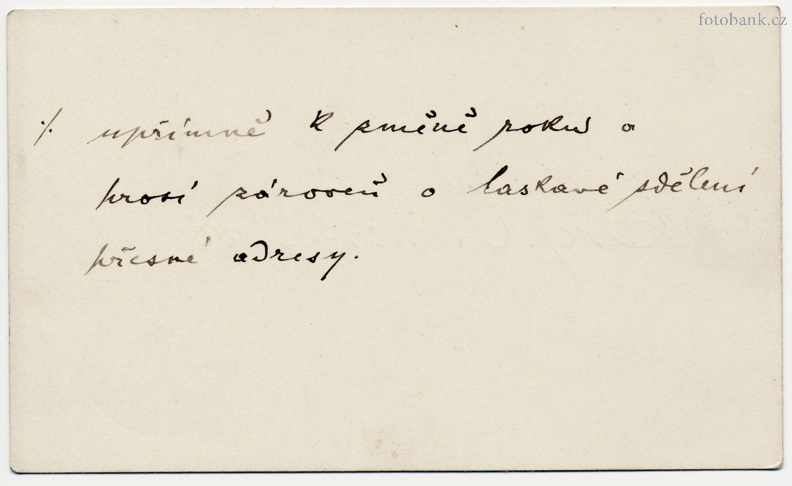 fotobank.cz
./. upřímně k změně roku a
prosí zároveň o laskavé sdělení
přesné adresy.